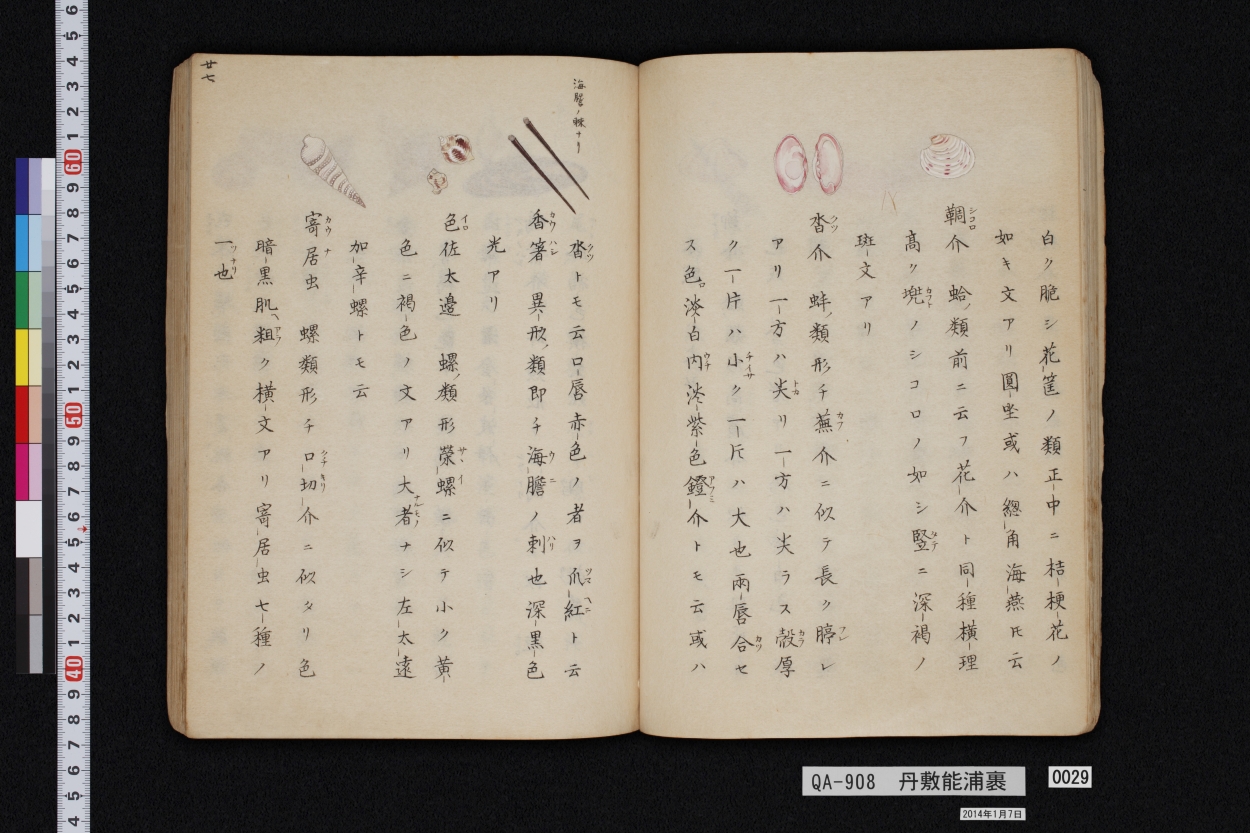 白ク脆シ花筐ノ類正中ニ桔梗花ノ
如キ文アリ圓坐或ハ總角海燕𪜈云
鞘介 蛤ノ類前ニ云フ花介ト同種横理
高ク兜ノシコロノ如シ竪ニ深褐ノ
斑文アリ
沓介 蚌ノ類形チ蕪介ニ似テ長ク
アリ一方ハ尖リ一方ハ尖ラス殻厚
ク一片ハ小ク一片ハ大也兩唇合セ
ス色淡白内淡紫色鐙介トモ云或ハ
沓トモ云口唇赤色ノ者ヲ爪紅ト云
香箸 異形ノ類即チ海膽ノ刺也深黒色
光アリ
色佐太邊 螺ノ類形榮螺ニ似テ小ク黄
色ニ褐色ノ文アリ大者ナシ左太遠
加辛螺トモ云
寄居虫 螺類形チ口切介ニ似タリ色
暗黒肌粗ク横文アリ寄居虫七種ノ
一也
海膽ノ棘ナリ
廿七
QA-908 丹敷能浦裹
0029
2014年1月7日